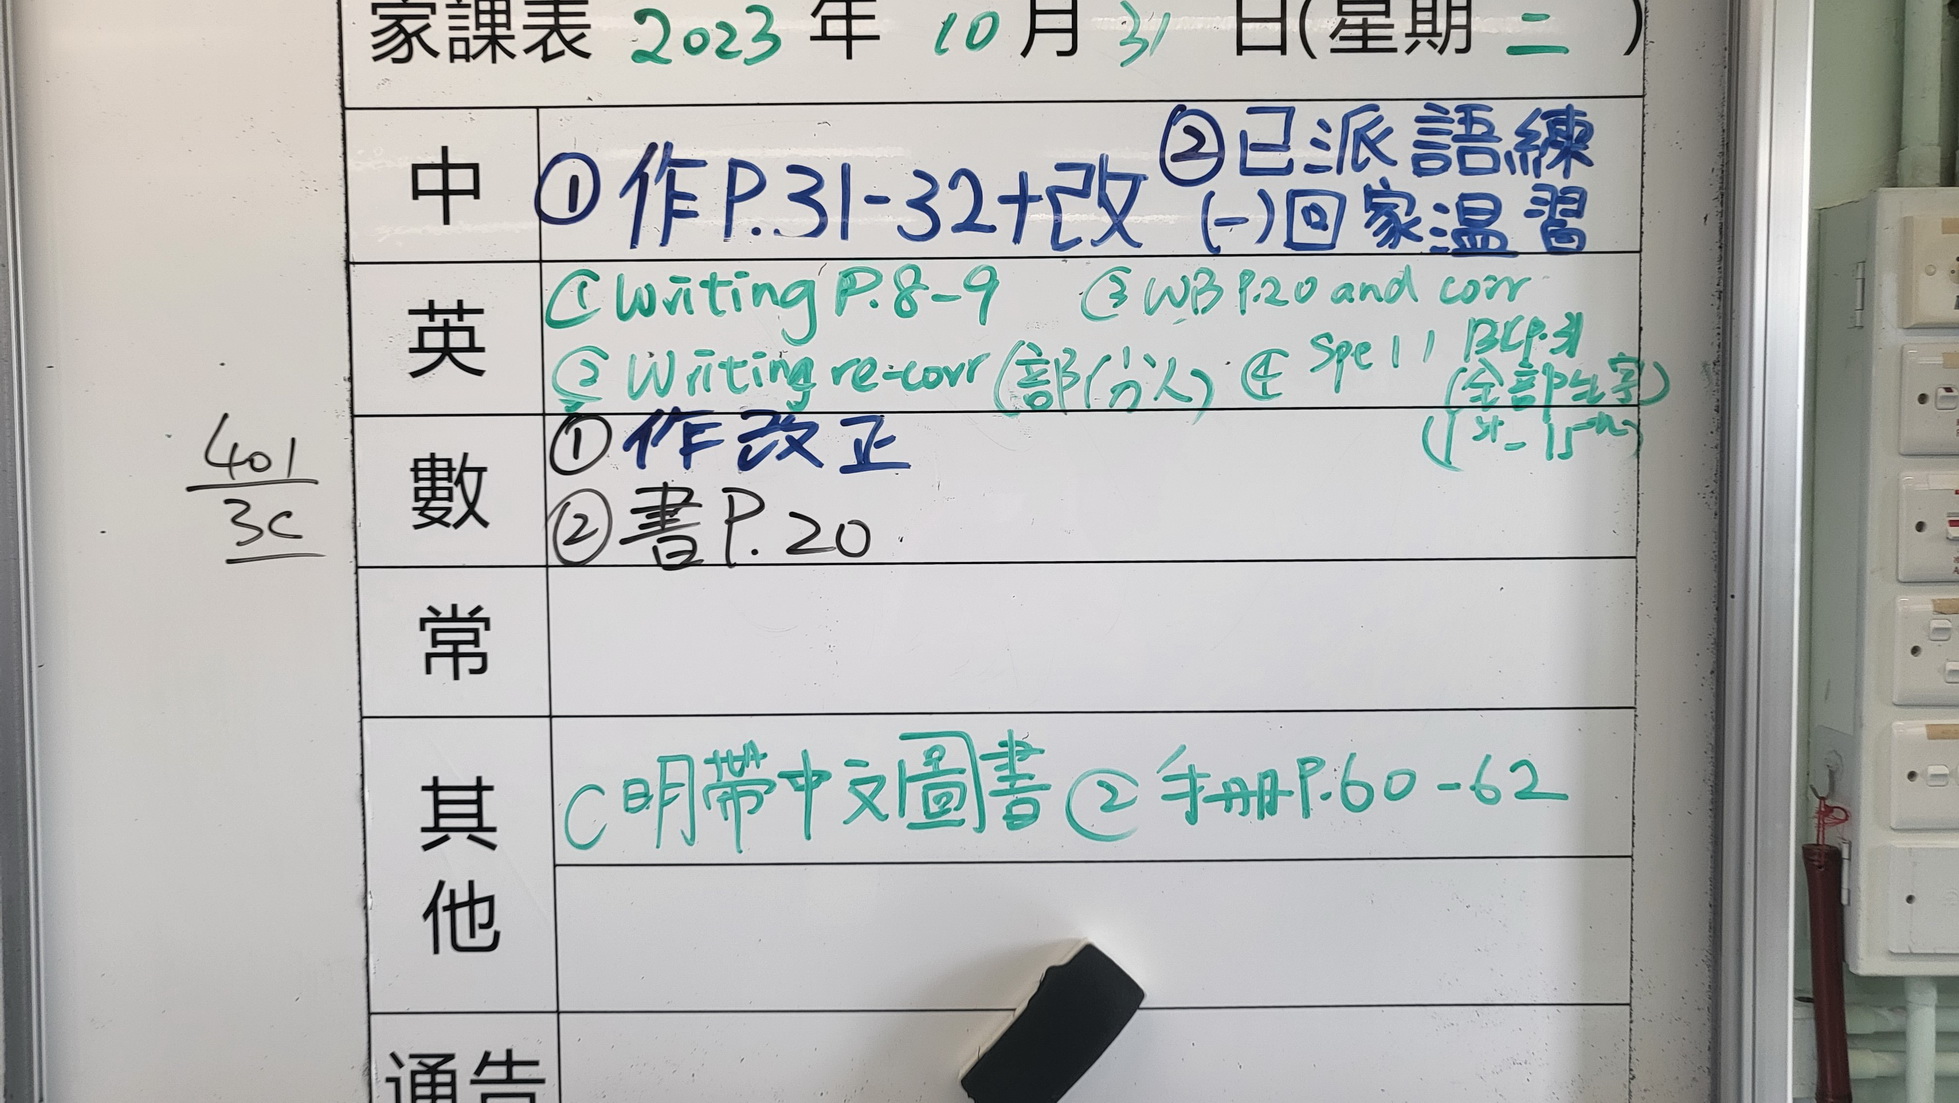 家課表 2023 年 10 月 31 日(星期 二 )
中
① 作P.31-32+改
② 已派語練
(一)回家温習
英
① Writing P.8-9
③ WB P.20 and corr
② Writing re-corr (部份人)
④ Spell BCP.31
(全部生字)
(1st - 15th)
數
① 作改正
② 書P.20
401
3C
常
其他
明帶中文圖書 ② 手册P.60-62
通告